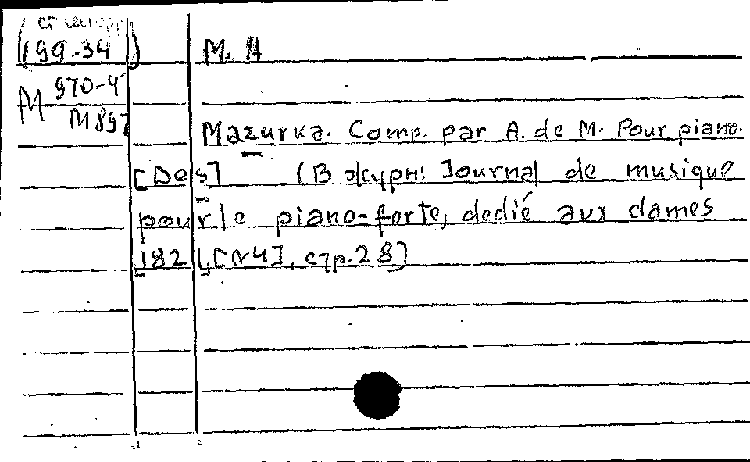 (199.34) M. A
M 970-4
M 897
Mazurka. Comp. par A. de M. Pour piano.
[Des] (В журн: Journal de musique
pour le piano-forte, dedié aux dames
182 [N4], стр. 28)